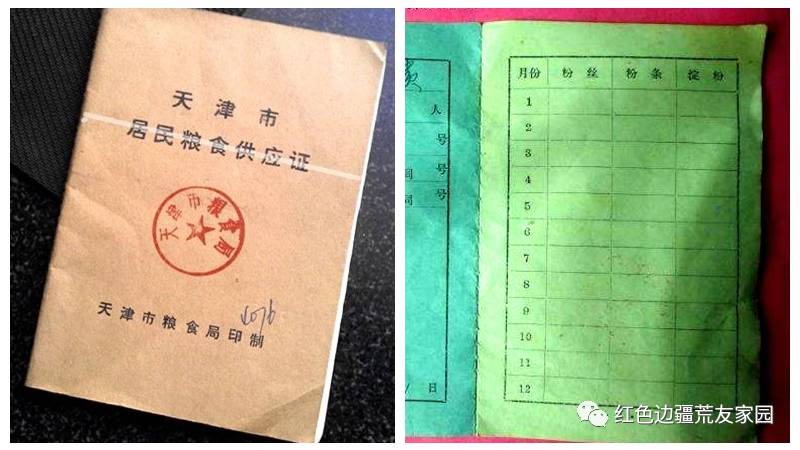 天津市
居民粮食供应证
天津市粮食局
天津市粮食局印制
人
号
同 号
同 号
/ 日
月份 粉丝 粉条 淀粉
1
2
3
4
5
6
7
8
9
10
11
12
红色边疆荒友家园